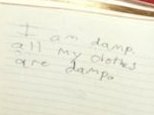 I am damp.
all my clothes
are damp.